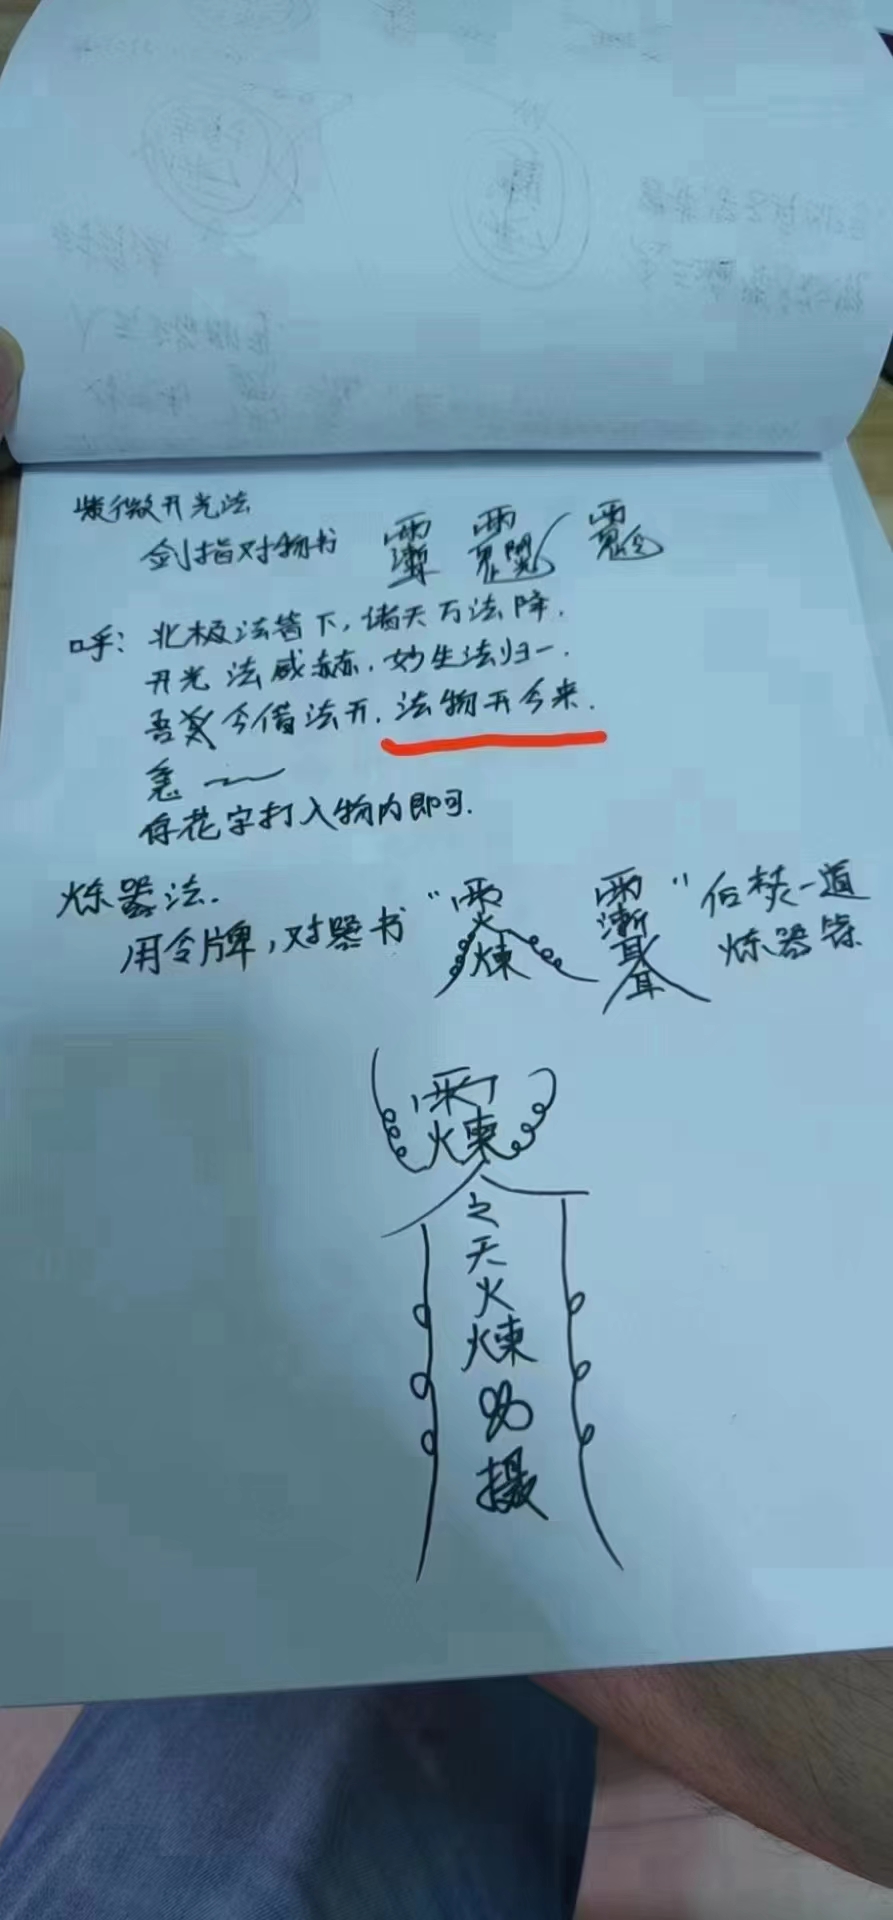 紫微开光法
剑指对物书
呼：北极法箓下，诸天万法降．
开光法威赫．妙生法归一．
吾今借法开．法物开今来．
急
存花字打入物内即可．
炼器法．
用令牌，对器书“ ”后焚一道
炼器箓
煉
之
天
火
煉
摄